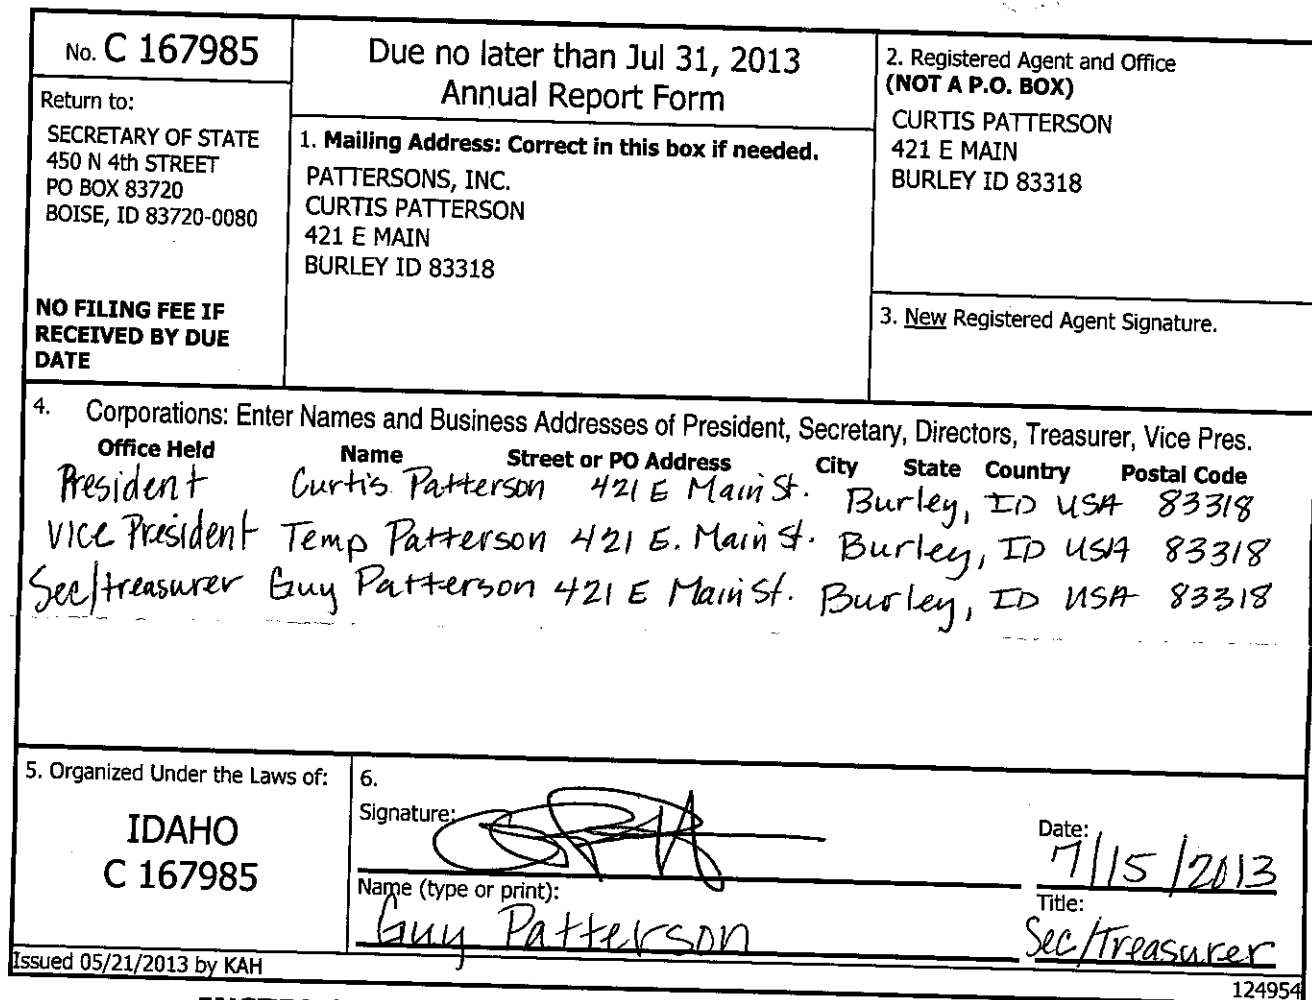 No. C 167985
Return to:
SECRETARY OF STATE
450 N 4th STREET
PO BOX 83720
BOISE, ID 83720-0080
NO FILING FEE IF
RECEIVED BY DUE
DATE
Due no later than Jul 31, 2013
Annual Report Form
1. Mailing Address: Correct in this box if needed.
PATTERSONS, INC.
CURTIS PATTERSON
421 E MAIN
BURLEY ID 83318
2. Registered Agent and Office
(NOT A P.O. BOX)
CURTIS PATTERSON
421 E MAIN
BURLEY ID 83318
3. New Registered Agent Signature.
4. Corporations: Enter Names and Business Addresses of President, Secretary, Directors, Treasurer, Vice Pres.
Office Held Name Street or PO Address City State Country Postal Code
President Curtis Patterson 421 E Main St. Burley, ID USA 83318
Vice President Temp Patterson 421 E. Main St. Burley, ID USA 83318
Sec/treasurer Guy Patterson 421 E Main St. Burley, ID USA 83318
5. Organized Under the Laws of:
IDAHO
C 167985
6.
Signature:
Date:
7/15/2013
Name (type or print):
Guy Patterson
Title:
Sec/Treasurer
Issued 05/21/2013 by KAH
124954